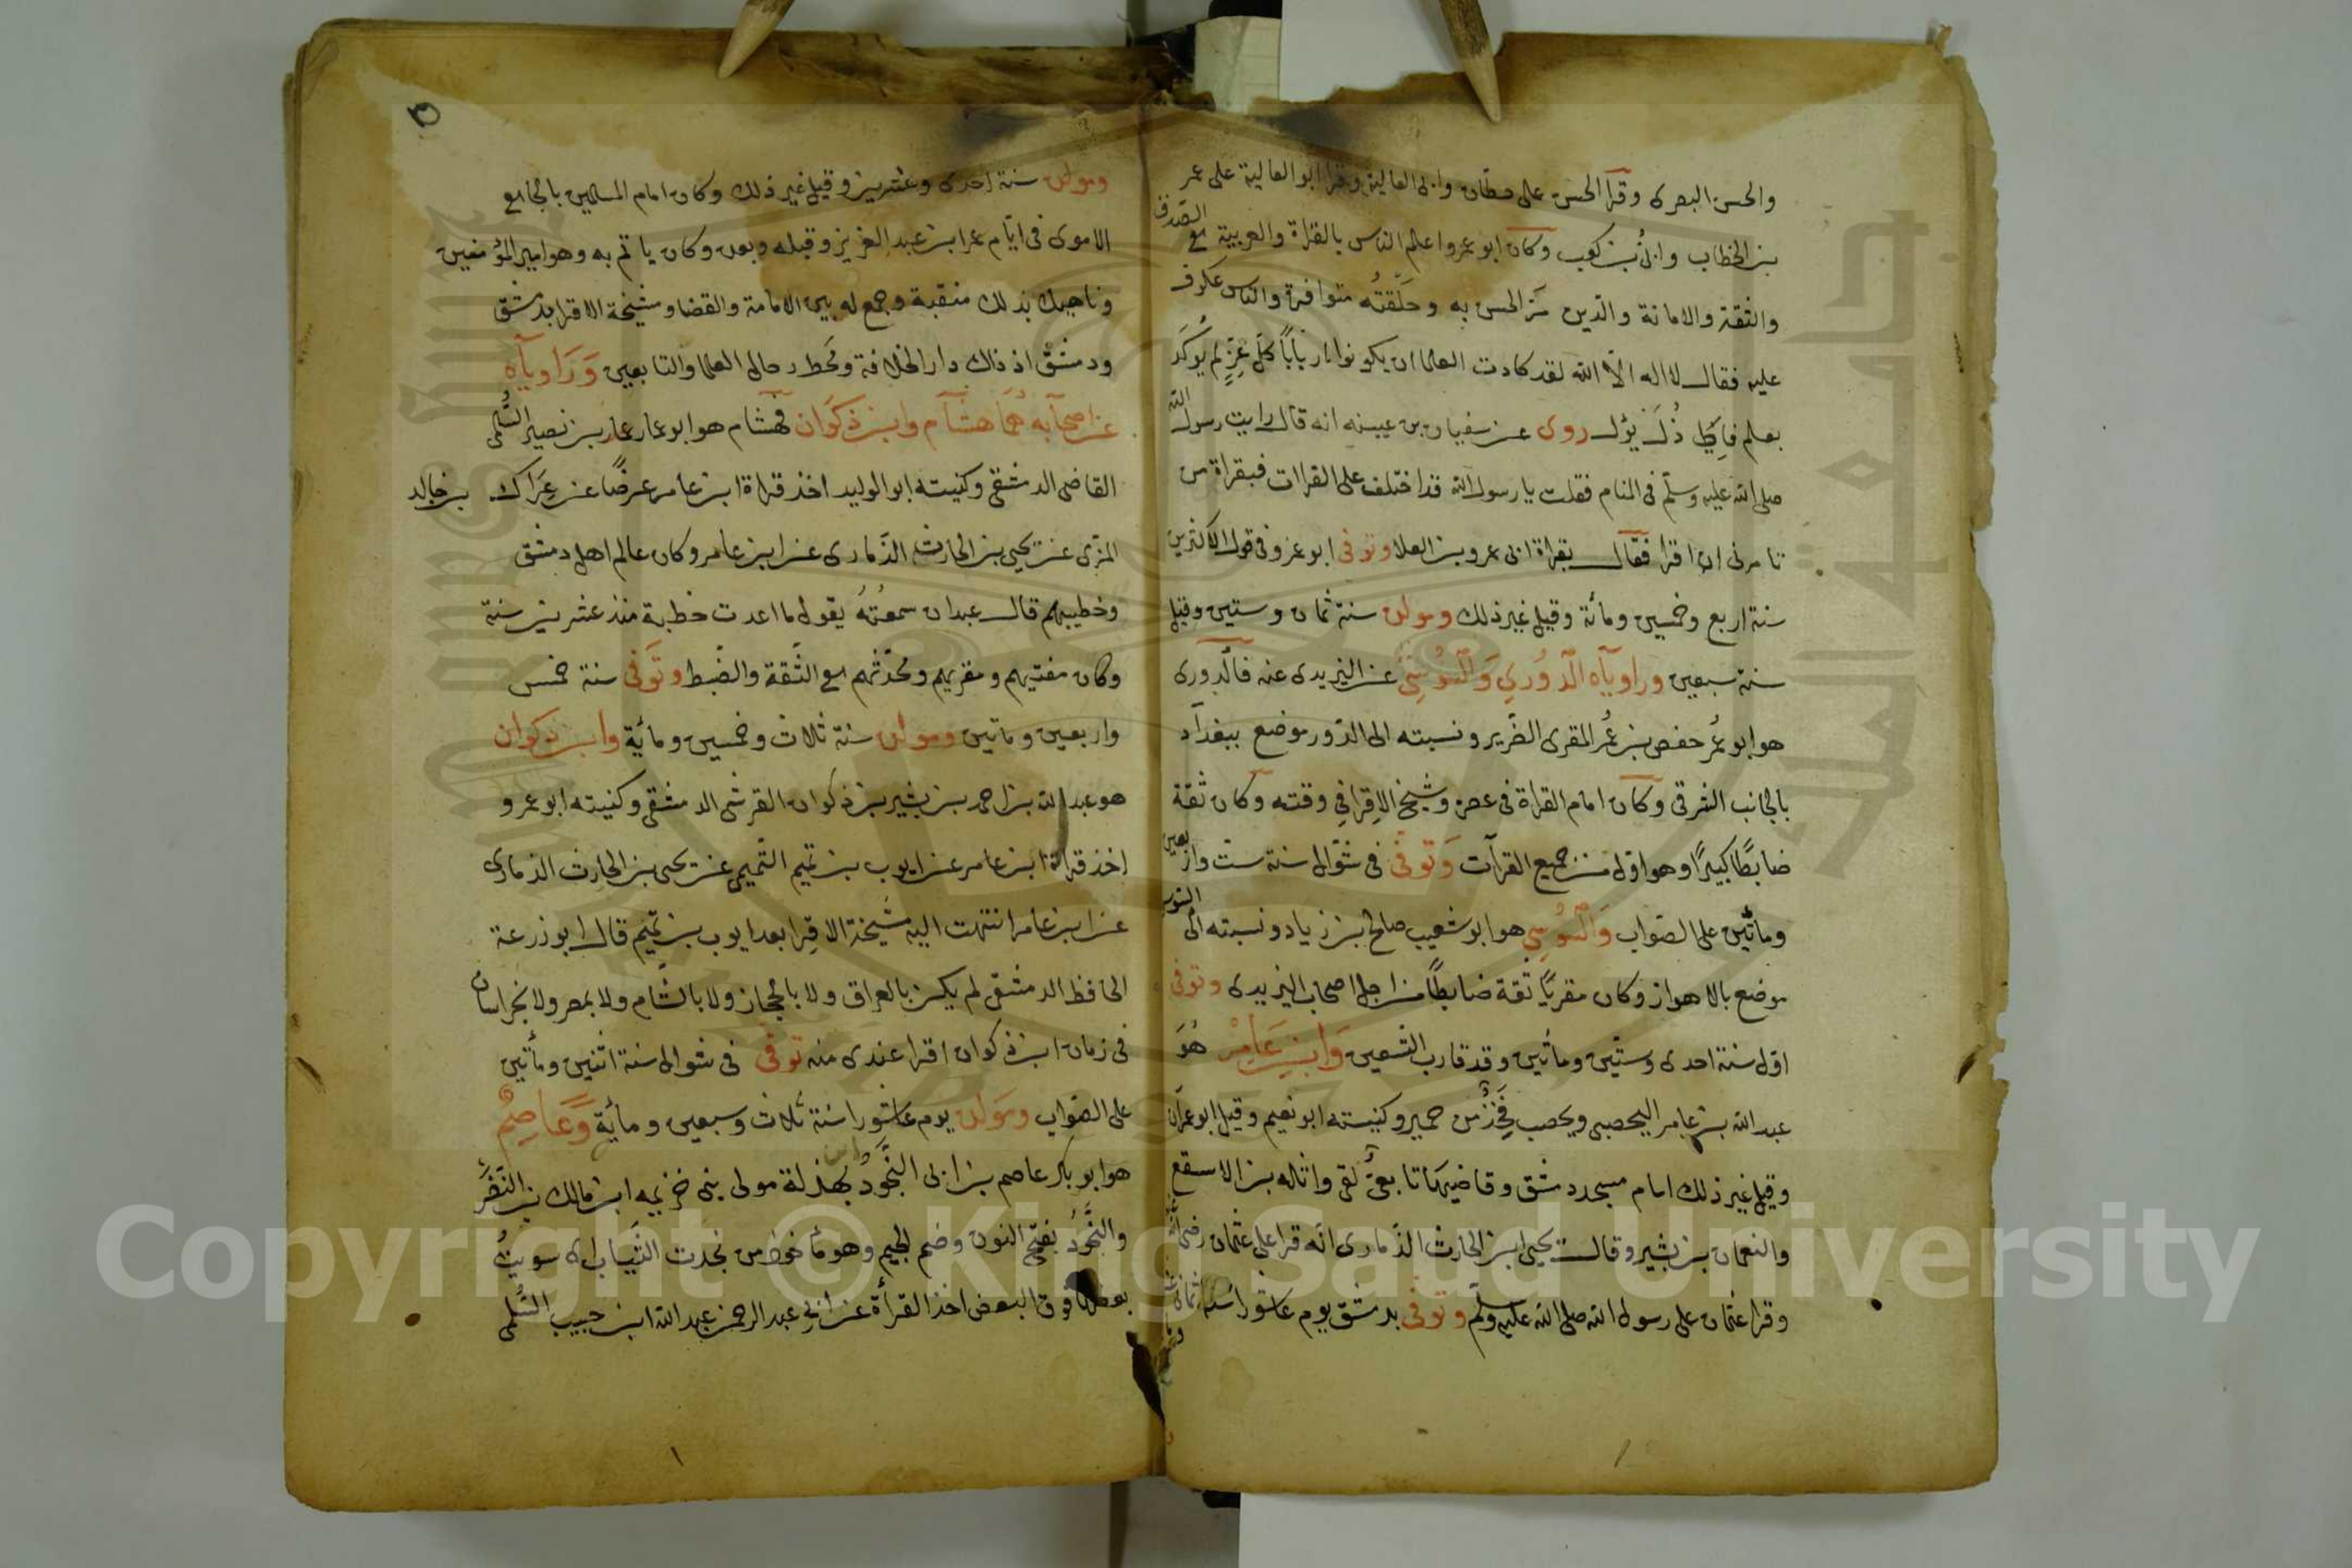 والحسن البصرى وقرا الحسن على حطان وابى العالية وقرا ابو العالية على عمر
بن الخطاب وابىّ بن كعب وكان ابو عمرو اعلم الناس بالقراة والعربية مع الصدق
والثقة والامانة والدّين مرّ الحسن به وحلقتُه متوافرة والناس عكوف
عليه فقال لا اله الاّ الله لقد كادت العلما ان يكونوا اربابًا كلّ عِزٍّ لم يُوكَد
بعلم فالى ذُلّ يؤل روى عن سفيان بن عيينه انه قال رايت رسول الله
صلى الله عليه وسلّم فى المنام فقلت يا رسول الله قد اختلف على القراات فبقراة من
تامرنى ان اقرا فقال بقراة ابى عمرو بن العلا وتوفى ابو عمرو فى قول الاكثرين
سنة اربع وخمسين ومائة وقيل غير ذلك ومولده سنة ثمان وستين وقيل
سنة سبعين وراوياه الدّورى والسّوسى عن اليزيدى عنه فالدورى
هو ابو عُمر حفص بن عُمر المقرى الضّرير ونسبته الى الدّور موضع ببغداد
بالجانب الشرقى وكان امام القراة فى عصره وشيخ الاقرا فى وقته وكان ثقة
ضابطًا كبيرًا وهو اوّل من جمع القرآت وتوفى فى شوّال سنة ستّ واربعين
ومائتين على الصّواب والسّوسى هو ابو شعيب صالح بن زياد ونسبته الى السّوس
موضع بالاهواز وكان مقريًا ثقة ضابطًا من اجل اصحاب اليزيدى وتوفى
اوّل سنة احدى وستّين ومائتين وقد قارب التسعين وابن عامر هُوَ
عبد الله بن عامر اليحصبى ويحصب فخذ من حمير وكنيته ابو نعيم وقيل ابو عمران
وقيل غير ذلك امام مسجد دمشق وقاضيها تابعىٌّ لقى واثله بن الاسقع
والنعمان بن بشير وقال يحيى ابن الحارث الذّمارى انّه قرا على عثمان رضى الله عنه
وقرا عثمان على رسول الله صلى الله عليه وسلّم وتوفى بدمشق يوم عاشورا سنة ثمان
ومولده سنة احدى وعشرين وقيل غير ذلك وكان امام المسلمين بالجامع
الاموى فى ايّام عمر ابن عبد العزيز وقبله وبعده وكان ياتم به وهو امير المؤمنين
وناهيك بذلك منقبة وجمع له بين الامامة والقضا ومشيخة الاقرا بدمشق
ودمشق اذ ذاك دار الخلافة ومَحطّ رحال العلما والتابعين وَرَاوياه
عن اصحابه هُمَا هشام وابن ذكوان فهشام هو ابو عمار عمار بن نصير السُّلمى
القاضى الدمشقى وكنيته ابو الوليد اخذ قراة ابن عامر عرضًا عن عِرَاك بن خالد
المزّى عن يحيى بن الحارث الذّمارى عن ابن عامر وكان عالم اهل دمشق
وخطيبهم قال عبدان سمعتهُ يقول ما اعدت خطبة منذ عشرين سنة
وكان مفتيهم ومقريهم ومحدّثهم مع الثّقة والضّبط وتَوفى سنة خمس
واربعين وماتين ومولده سنة ثلاث وخمسين ومائة وابن ذكوان
هو عبد الله بن احمد بن بشير بن ذكوان القرشى الدمشقى وكنيته ابو عمرو
اخذ قراة ابن عامر عن ايوب بن تميم التّميمى عن يحيى بن الحارث الذمارى
عن ابن عامر انتهت اليه مشيخة الاقرا بعد ايوب بن تميم قال ابو زرعة
الحافظ الدمشقى لم يكن بالعراق ولا بالحجاز ولا بالشّام ولا بمصر ولا بخراسان
فى زمان ابن ذكوان اقرا عندى منه توفى فى شوال سنة اثنين ومأتين
على الصّواب ومولده يوم عاشورا سنة ثلاث وسبعين ومائة وَعَاصِمٌ
هو ابو بكر عاصم بن ابى النَّجُودُ بهذلة مولى بنى خزيمه ابن مالك بن النّضر
والنَّجُودُ بفتح النون وضم الجيم وهو مأخوذ من نجدت الثّياب اى سويتُ
بعضها فوق البعض اخذ القرأة عن ابى عبد الرحمن عبد الله ابن حبيب السُّلمى
Copyright © King Saud University